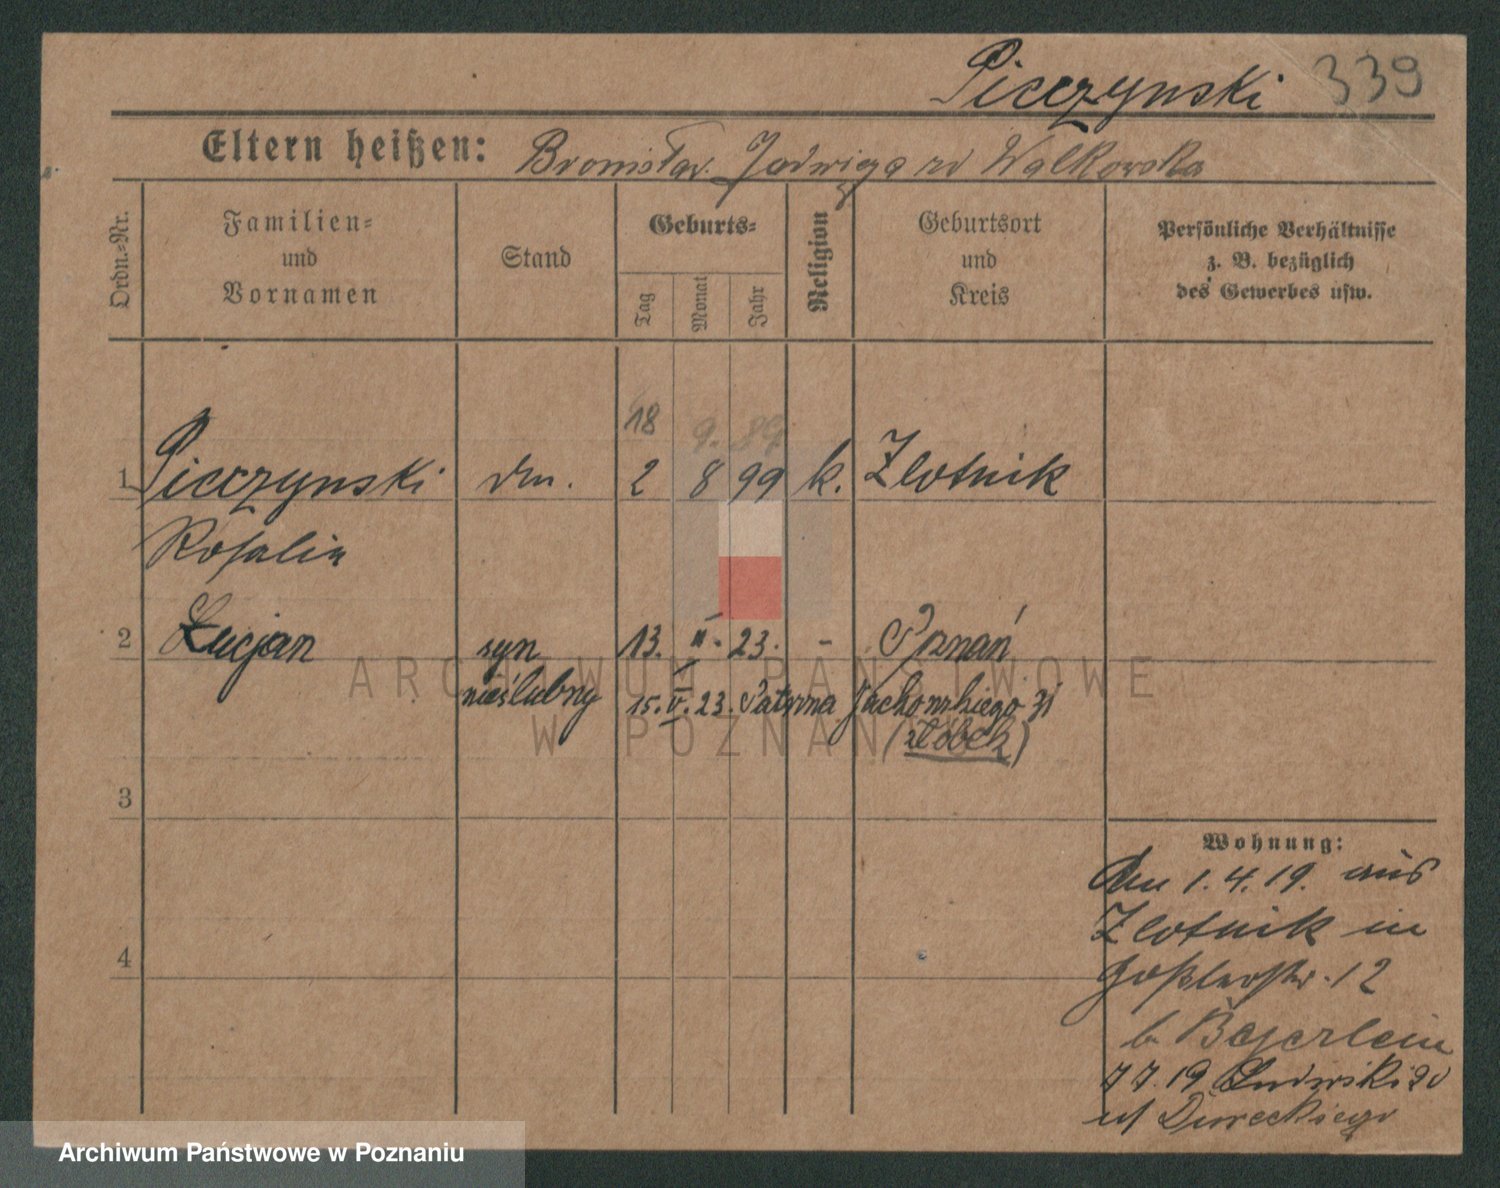 Pieczynski 339
Eltern heißen: Bronisław. Jadwiga zd Walkowska
Ordn.-Nr.
Familien-
und
Vornamen
Stand
Geburts-
Tag
Monat
Jahr
Religion
Geburtsort
und
Kreis
Persönliche Verhältnisse
z. B. bezüglich
des Gewerbes usw.
18 9. 89
1 Pieczynski dm. 2 8 99 k. Zlotnik
Rosalia
2 Lucjan syn 13. II. 23. - Poznań
nieślubny 15. V. 23. Patrona Jachowskiego 31
(żłobek)
3
4
Wohnung:
Am 1. 4. 19. aus
Zlotnik in
Goßlerstr. 12
b. Bejerlein
7 7. 19
ul Dureckiego
ARCHIWUM PAŃSTWOWE
W POZNANIU
Archiwum Państwowe w Poznaniu